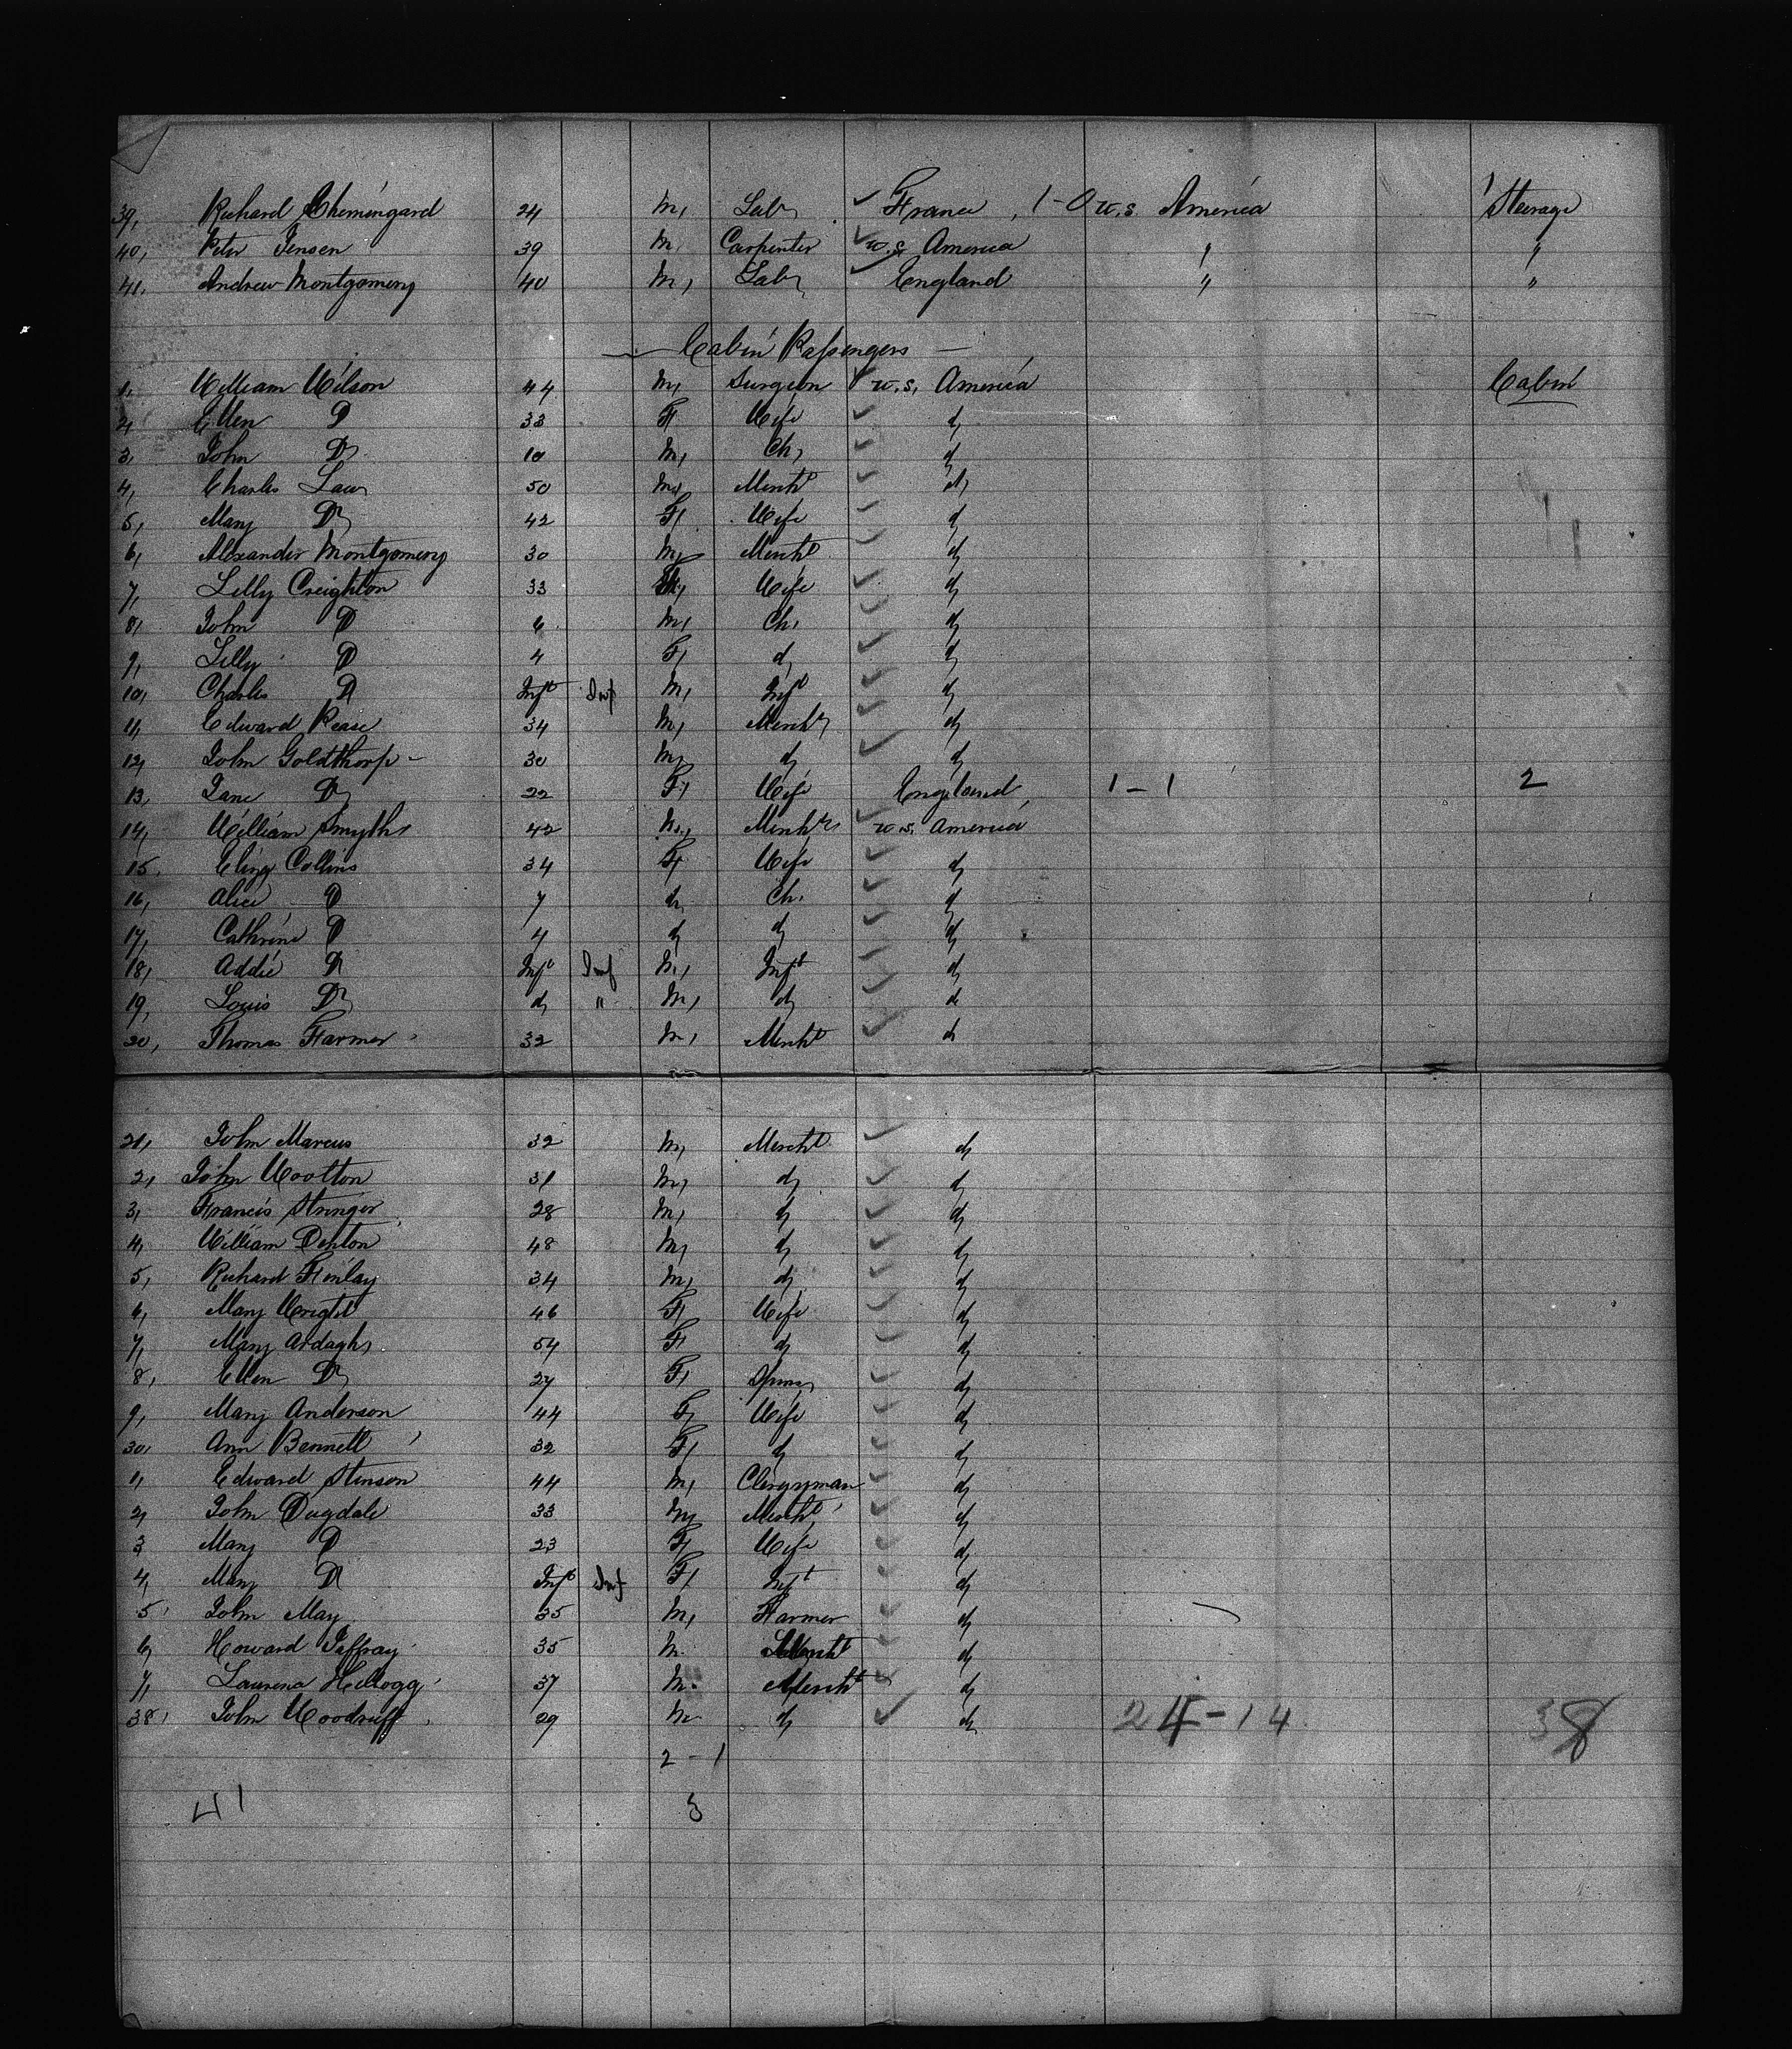 39, Richard Chemingard 24 M, Lab, France, 1-0 U.S. America Steerage
40, Peter Jensen 39 M, Carpenter U.S. America " "
41, Andrew Montgomery 40 M, Lab, England " "
Cabin Passengers
1, William Wilson 44 M, Surgeon U.S. America Cabin
2, Ellen D 33 F Wife d
3, John D 10 M, Ch, d
4, Charles Law 50 M, Mercht d
5, Mary D 42 F, Wife d
6, Alexander Montgomery 30 M, Mercht d
7, Lilly Creighton 33 Wife d
8, John D 6 M, Ch, d
9, Lilly D 4 F, d d
10, Charles D Inft Inf M, Inft d
11, Edward Pease 34 M, Mercht d
12, John Goldthorp 30 M, d d
13, Jane D 22 F, Wife England, 1-1 2
14, William Smyth 42 M, Mercht U.S. America
15, Eliza Collins 34 F Wife d
16, Alice D 7 d Ch, d
17, Cathrine D 4 d d d
18, Addie D Inft Inf M, Inft d
19, Louis D d " M, d d
20, Thomas Farmer 32 M, Mercht d
21, John Marcus 32 M, Mercht d
2, John Wootton 31 M, d d
3, Francis Stringer 28 M, d d
4, William Denton 48 M, d d
5, Richard Finlay 34 M, d d
6, Mary Wright 46 F, Wife d
7, Mary Ardagh 54 F, d d
8, Ellen D 27 F, Spins d
9, Mary Anderson 44 F, Wife d
30, Ann Bennett 32 F, d d
1, Edward Stinson 44 M, Clergyman d
2, John Dugdale 33 M, Mercht d
3 Mary D 23 F, Wife d
4, Mary D Inft Inf F, Inft d
5, John May 35 M, Farmer d
6, Howard Jaffray 35 M. Mercht d
7, Laurence Kellogg 37 M. Mercht d
38, John Woodruff 29 M d d 24-14 38
2-1
41 3